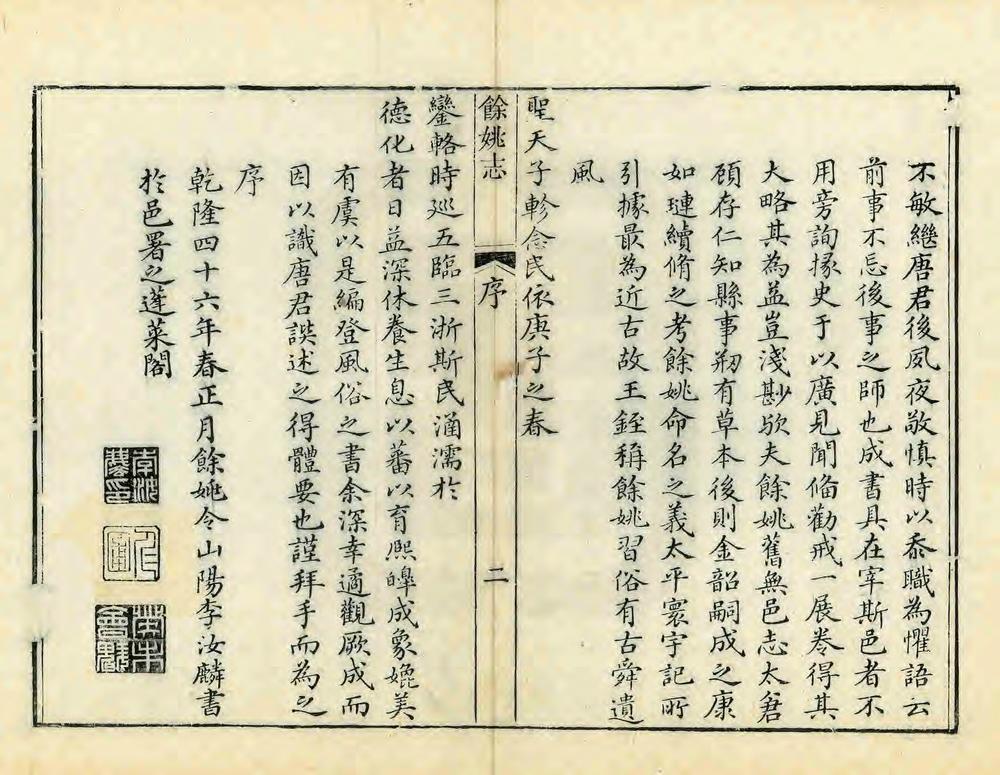 不敏繼唐君後夙夜敬慎時以忝職為懼語云
前事不忘後事之師也成書具在宰斯邑者不
用旁詢掾史于以廣見聞俻勸戒一展卷得其
大略其為益豈淺尠欤夫餘姚舊無邑志太倉
顧存仁知縣事剏有草本後則金韶嗣成之康
如璉續脩之考餘姚命名之義太平寰宇記所
引據最為近古故王銍稱餘姚習俗有古舜遺
風
聖天子軫念民依庚子之春
餘姚志
序
二
鑾輅時廵五臨三浙斯民涵濡於
德化者日益深休養生息以蕃以育熙皥成象媲美
有虞以是編登風俗之書余深幸遹觀厥成而
因以識唐君譔述之得體要也謹拜手而為之
序
乾隆四十六年春正月餘姚令山陽李汝麟書
於邑署之蓬萊閣